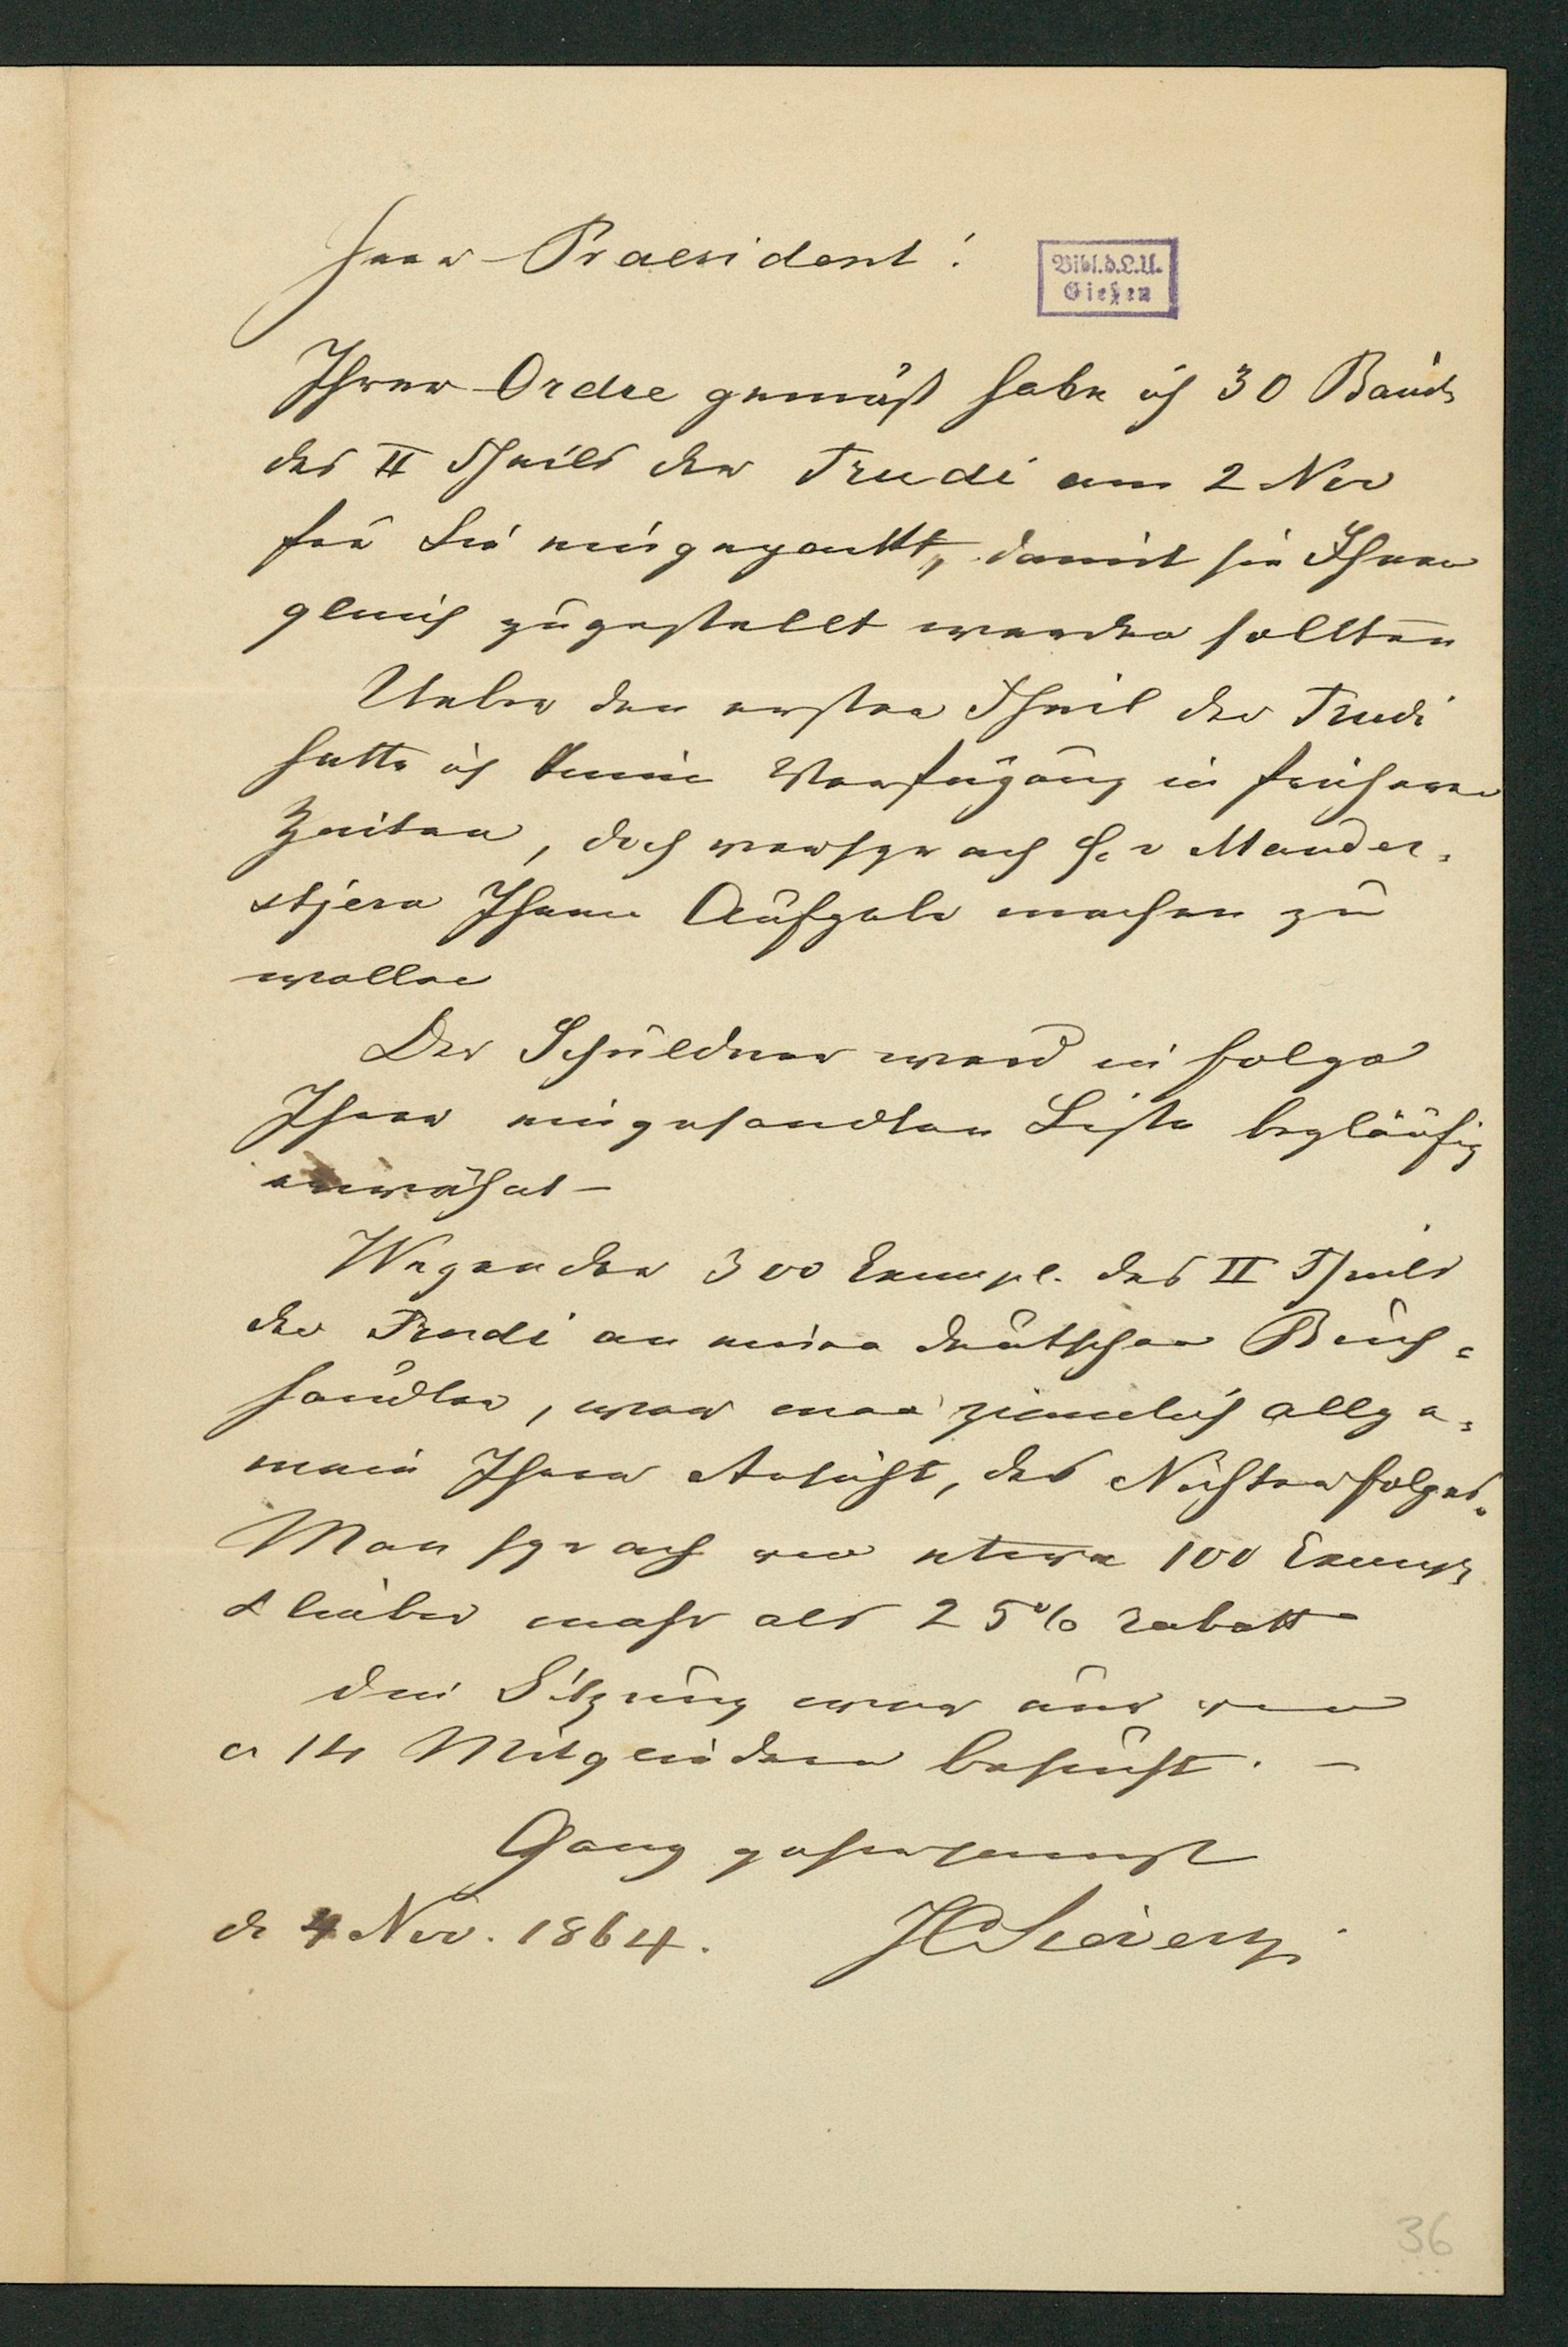 Herr Praesident!
Bibl. d. L. U.
Gießen
Ihrer Ordre gemäß habe ich 30 Bände
des II Theils der Trudi am 2 Nov
für Sie eingepackt, damit sie Ihnen
gleich zugestellt werden sollten
Ueber den ersten Theil der Trudi
hatte ich keine Verfügung in früheren
Zeiten, doch versprach H. v Mander-
stjern Ihnen Aufgabe machen zu
wollen
Der Schuldner ward in folge
Ihrer eingesandten Liste beyläufig
erwähnt –
Wegen der 300 Exempl. des II Theils
der Trudi an einen deutschen Buch-
händler, war man ziemlich allge-
mein Ihrer Ansicht, des Nichterfolges.
Man sprach von etwa 100 Exempl
& lieber mehr als 25% rabatt
Die Sitzung war nur von
ca 14 Mitgliedern besucht. –
Ganz gehorsamst
d. 4 Nov. 1864.
36